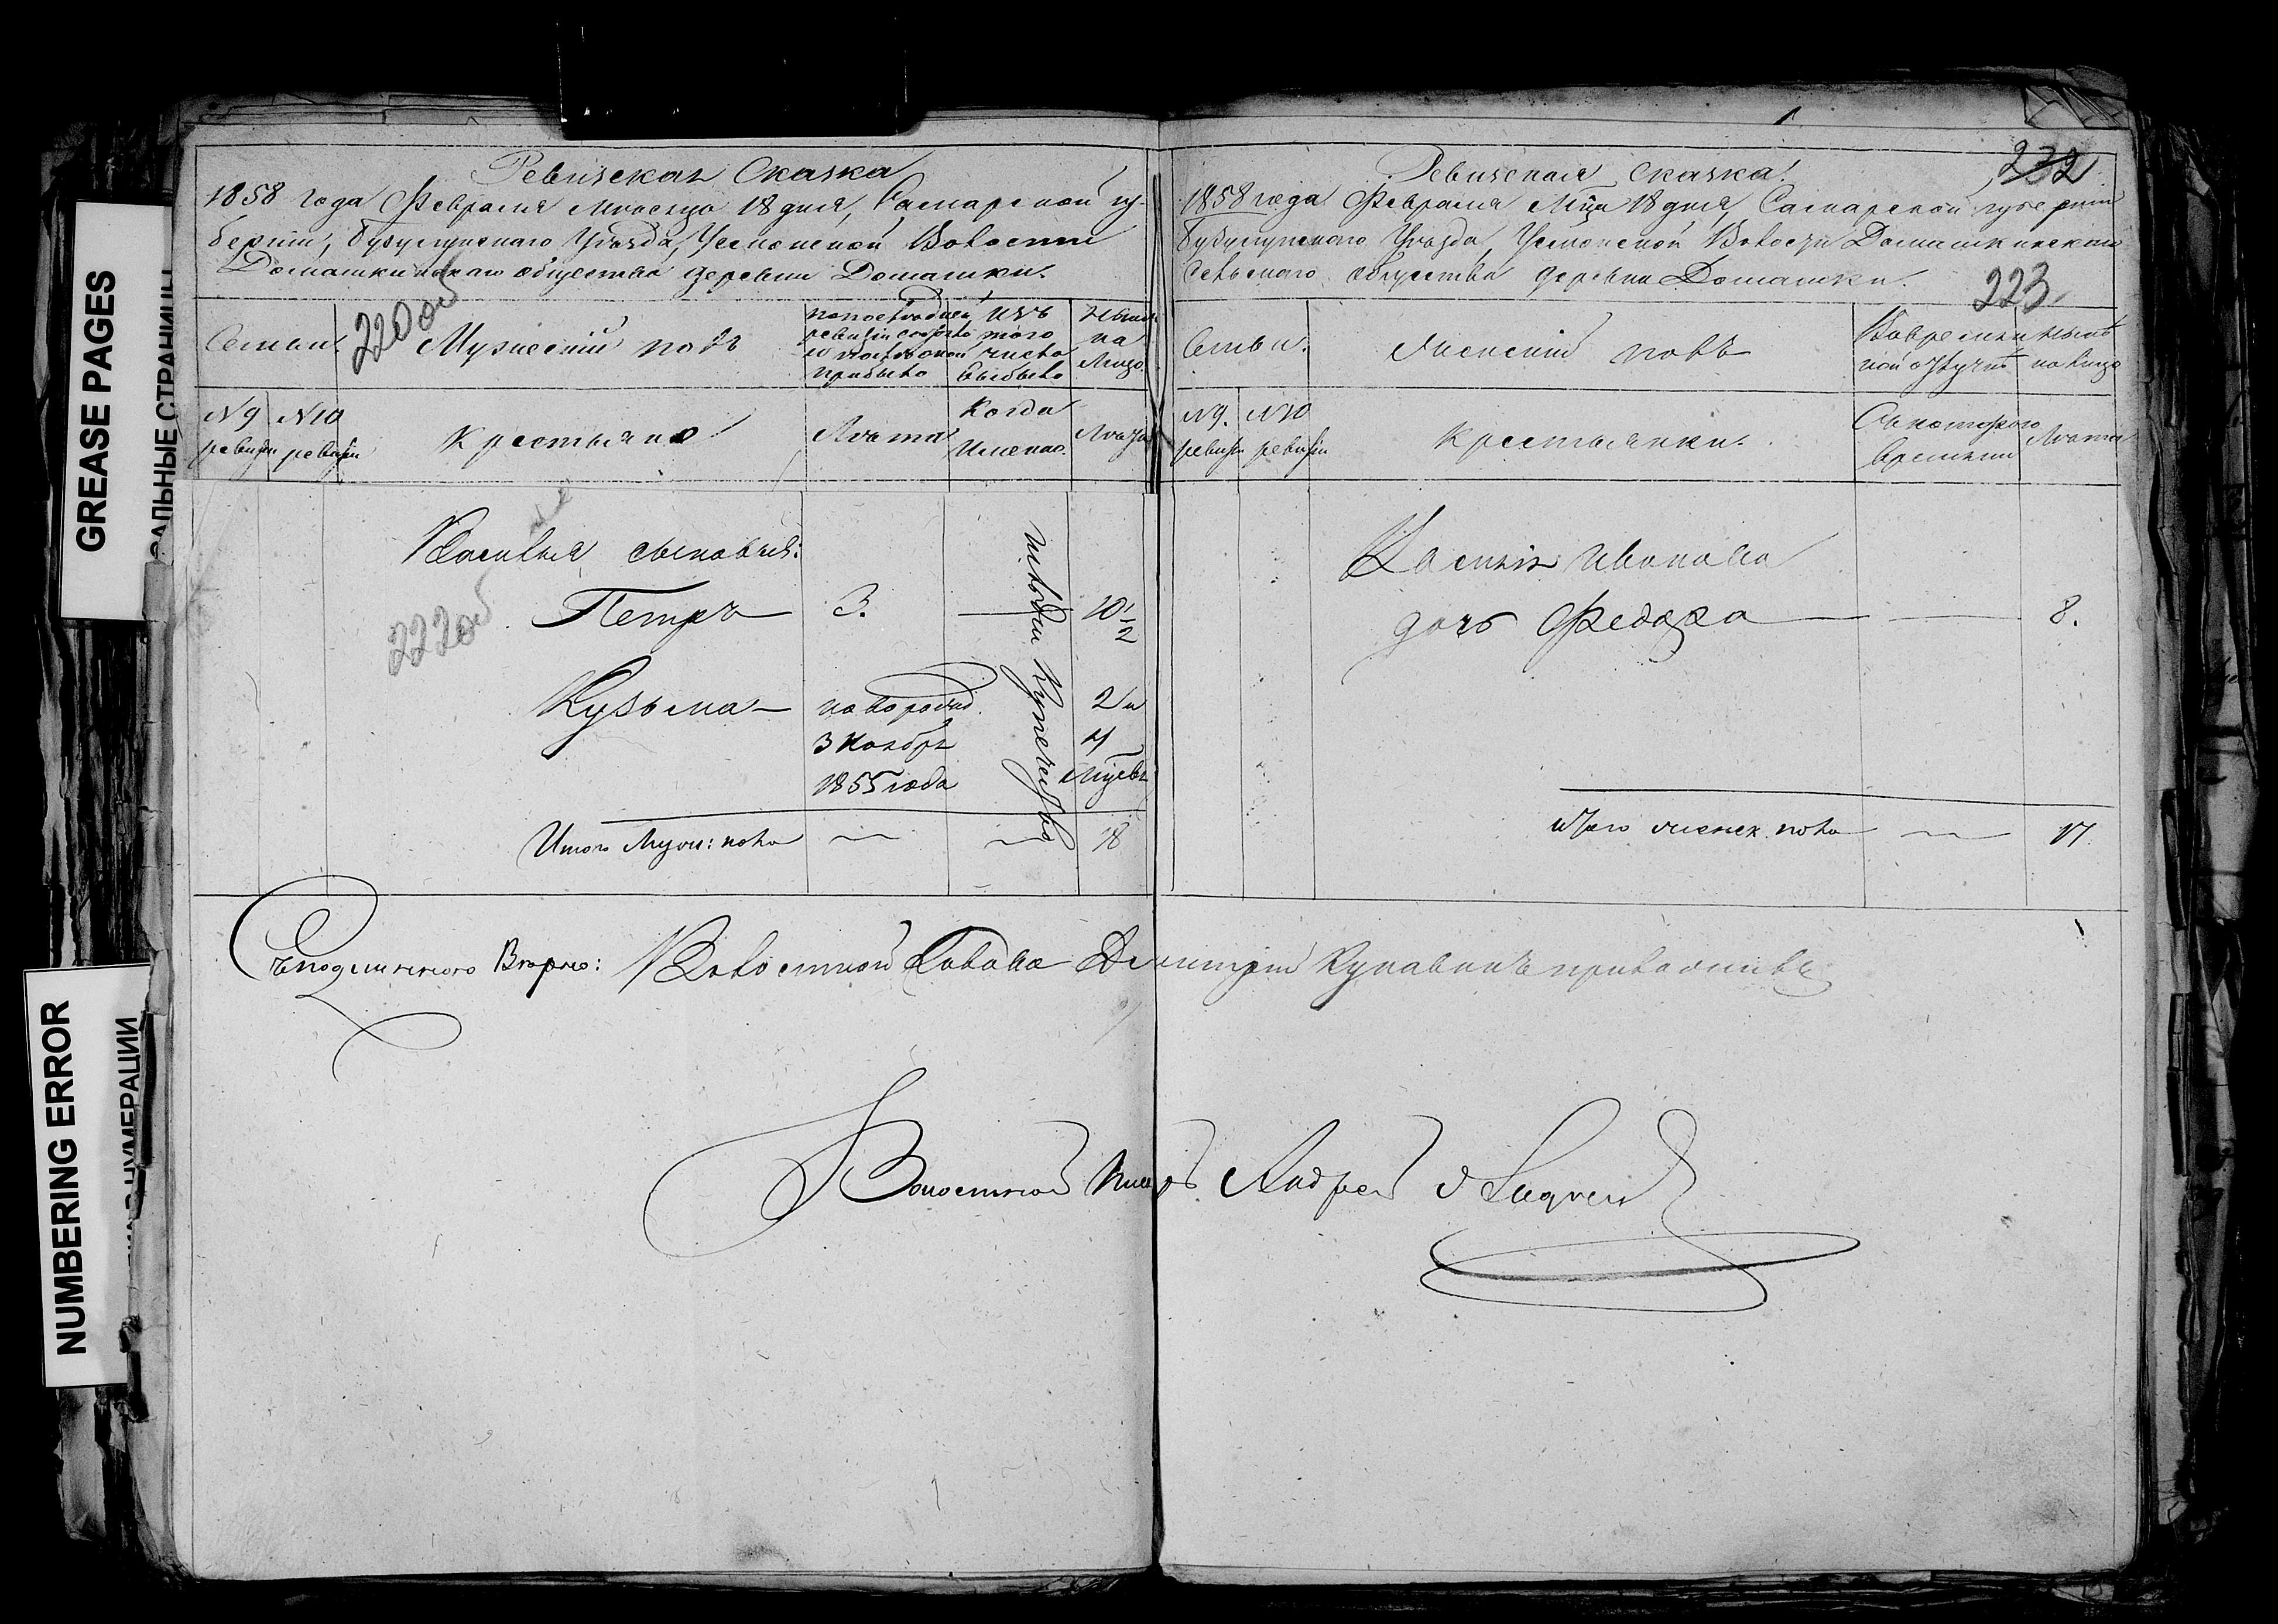 GREASE PAGES
САЛЬНЫЕ СТРАНИЦЫ
NUMBERING ERROR
НУМЕРАЦИИ
Ревизская Сказка
1858 года Февраля Месяца 18 дня, Самарской гу-
бернии, Бузулукского Уезда, Волости
Домашкинскаго общества деревни Домашки.
220об
Семьи.
Мужеский полъ
по последней ревизіи состояло и после оной прибыло
Изъ того числа выбыло
Ныне на Лицо
№ 9 ревизіи
№ 10 ревизіи
Крестьяне
Лета
Когда Именно.
Лета
Василья сыновья:
222об
Петръ — 3. — 10 1/2
Кузьма — новорожд. 2 и
3 Ноября 4
1855 года Мцевъ
Итого Муж: пола — — 18
232
Ревизская сказка.
1858 года Февраля Мца 18 дня, Самарской губернии
Бузулукскаго Уезда, Волости Домашкинскаго
Сельскаго общества деревни Домашки.
223
Семьи.
Женскій полъ
Во временной отлучке
ныне на лицо
№ 9. ревизіи
№ 10 ревизіи
Крестьянки.
Съ котораго времени
Лета
Иванова
дочь Федора — — 8.
Итого женск. пола — 17.
Волостной Голова Дмитрій
Волостной Писарь Андрей